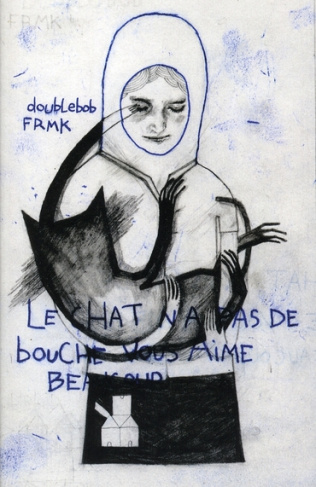 doublebob
FRMK
LE CHAT N'A PAS DE
bouCHE VOUS AIME
BEAUCOUP